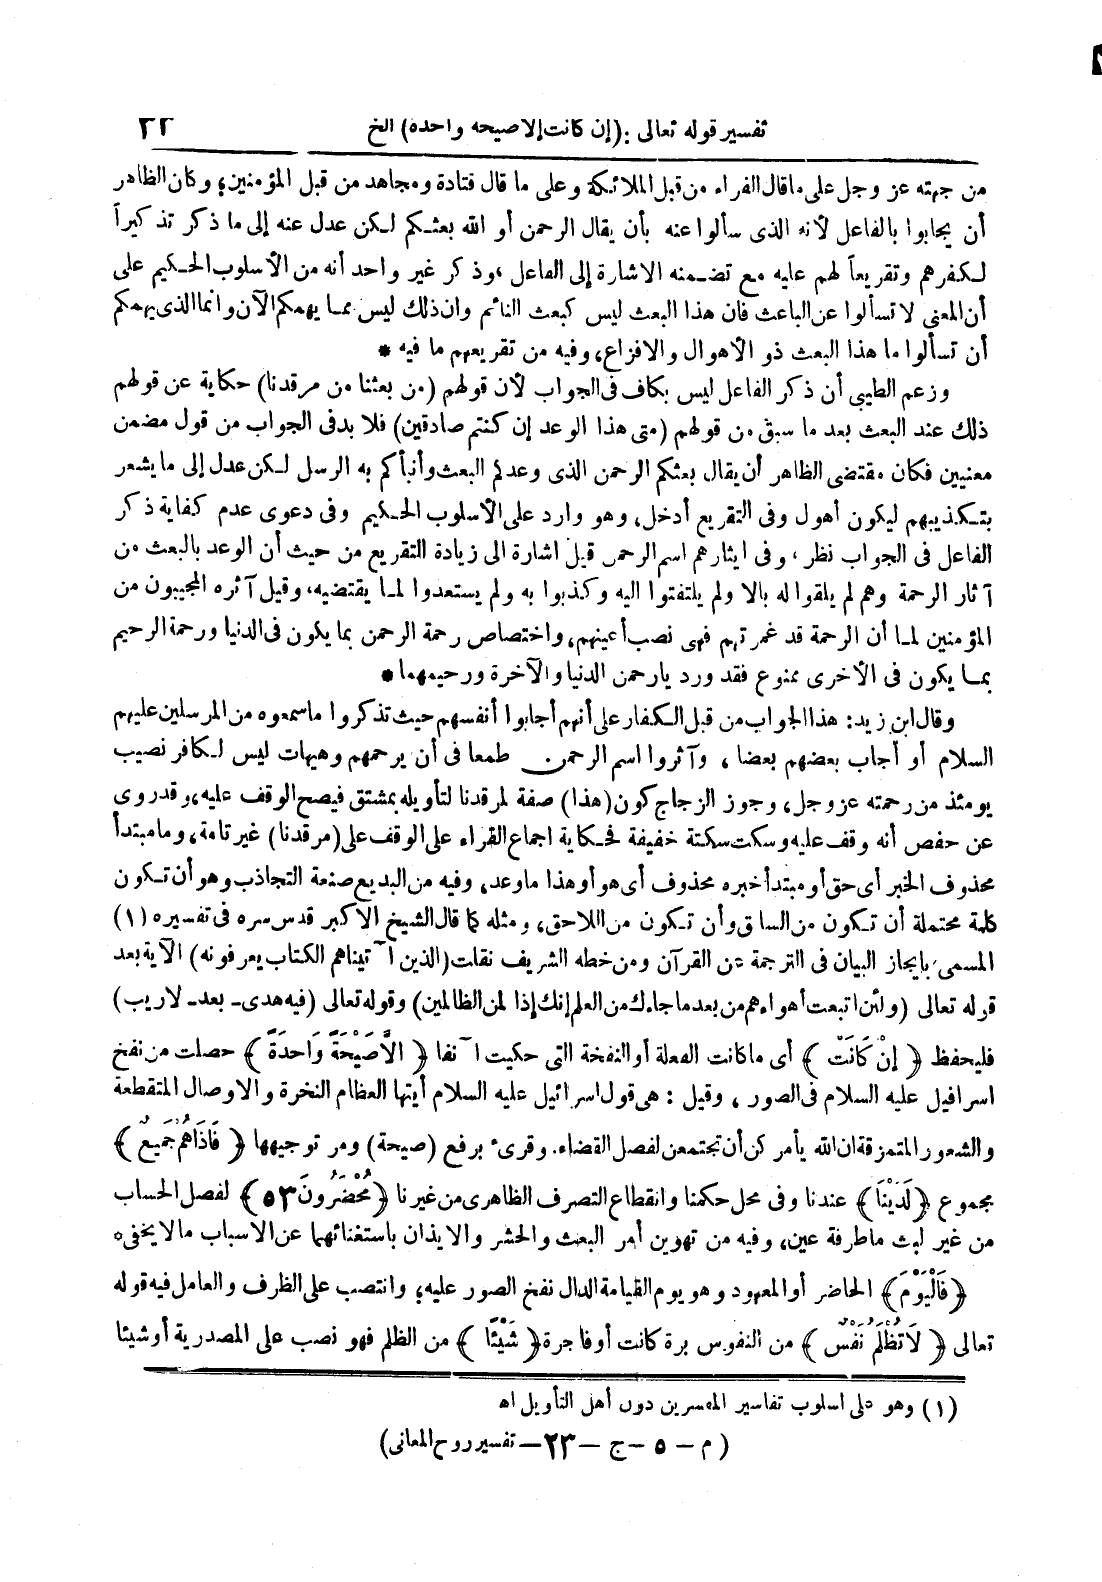 تفسير قوله تعالى : (إن كانت إلا صيحه واحده) الخ ٣٣
من جهته عز وجل على ما قال الفراء من قبل الملائكة وعلى ما قال قتادة ومجاهد من قبل المؤمنين، وكان الظاهر
أن يجابوا بالفاعل لأنه الذى سألوا عنه بأن يقال الرحمن أو الله بعثكم لكن عدل عنه إلى ما ذكر تذكيراً
لكفرهم وتقريعاً لهم عليه مع تضمنه الاشارة إلى الفاعل ، وذكر غير واحد أنه من الأسلوب الحكيم على
أن المعنى لا تسألوا عن الباعث فان هذا البعث ليس كبعث النائم وان ذلك ليس مما يهمكم الآن وانما الذى يهمكم
أن تسألوا ما هذا البعث ذو الأهوال والافزاع، وفيه من تقريعهم ما فيه *
وزعم الطيبى أن ذكر الفاعل ليس بكاف فى الجواب لأن قولهم (من بعثنا من مرقدنا) حكاية عن قولهم
ذلك عند البعث بعد ما سبق من قولهم (متى هذا الوعد إن كنتم صادقين) فلا بد فى الجواب من قول مضمن
معنيين فكان مقتضى الظاهر أن يقال بعثكم الرحمن الذى وعدكم البعث وأنبأكم به الرسل لكن عدل إلى ما يشعر
بتكذيبهم ليكون أهول وفى التقريع أدخل، وهو وارد على الأسلوب الحكيم وفى دعوى عدم كفاية ذكر
الفاعل فى الجواب نظر ، وفى ايثارهم اسم الرحمن قيل اشارة الى زيادة التقريع من حيث أن الوعد بالبعث من
آثار الرحمة وهم لم يلقوا له بالا ولم يلتفتوا اليه وكذبوا به ولم يستعدوا لما يقتضيه، وقيل آثره المجيبون من
المؤمنين لما أن الرحمة قد غمرتهم فهى نصب أعينهم، واختصاص رحمة الرحمن بما يكون فى الدنيا ورحمة الرحيم
بما يكون فى الأخرى ممنوع فقد ورد يارحمن الدنيا والآخرة ورحيمهما *
وقال ابن زيد: هذا الجواب من قبل الكفار على أنهم أجابوا أنفسهم حيث تذكروا ما سمعوه من المرسلين عليهم
السلام أو أجاب بعضهم بعضا ، وآثروا اسم الرحمن طمعا فى أن يرحمهم وهيهات ليس لكافر نصيب
يومئذ من رحمته عز وجل، وجوز الزجاج كون (هذا) صفة لمرقدنا لتأويله بمشتق فيصح الوقف عليه، وقد روى
عن حفص أنه وقف عليه وسكت سكتة خفيفة فحكاية اجماع القراء على الوقف على (مرقدنا) غير تامة، وما مبتدأ
محذوف الخبر أى حق أو مبتدأ خبره محذوف أى هو أو هذا ما وعد، وفيه من البديع صنعة التجاذب وهو أن تكون
كلمة محتملة أن تكون من السابق وأن تكون من اللاحق، ومثله كما قال الشيخ الأكبر قدس سره فى تفسيره (١)
المسمى بايجاز البيان فى الترجمة عن القرآن ومن خطه الشريف نقلت (الذين آتيناهم الكتاب يعرفونه) الآية بعد
قوله تعالى (ولئن اتبعت أهواءهم من بعد ما جاءك من العلم إنك إذا لمن الظالمين) وقوله تعالى (فيه هدى ـ بعد ـ لاريب)
فليحفظ ﴿ إنْ كَانَتْ ﴾ أى ما كانت الفعلة أو النفخة التى حكيت آنفا ﴿ الاَّصَيْحَةً وَاحدَةً ﴾ حصلت من نفخ
اسرافيل عليه السلام فى الصور ، وقيل : هى قول اسرائيل عليه السلام أيتها العظام النخرة والاوصال المتقطعة
والشعور المتمزقة ان الله يأمر كن أن تجتمعن لفصل القضاء. وقرىء برفع (صيحة) ومر توجيهها ﴿ فَاذَاهُمْ جَميعٌ ﴾
مجموع ﴿ لَدَيْنَا ﴾ عندنا وفى محل حكمنا وانقطاع التصرف الظاهرى من غيرنا ﴿ مُحْضَرُونَ ٥٣ ﴾ لفصل الحساب
من غير لبث ما طرفة عين، وفيه من تهوين أمر البعث والحشر والايذان باستغنائهما عن الاسباب ما لا يخفى ه
﴿ فَالْيَوْمَ ﴾ الحاضر أو المعهود وهو يوم القيامة الدال نفخ الصور عليه، وانتصب على الظرف والعامل فيه قوله
تعالى ﴿ لَا تُظْلَمُ نَفْسٌ ﴾ من النفوس برة كانت أو فاجرة ﴿ شَيْئًا ﴾ من الظلم فهو نصب على المصدرية أو شيئا
(١) وهو على اسلوب تفاسير المفسرين دون أهل التأويل اه
(م ـ ٥ ـ ج ـ ٢٣ ـ تفسير روح المعانى)